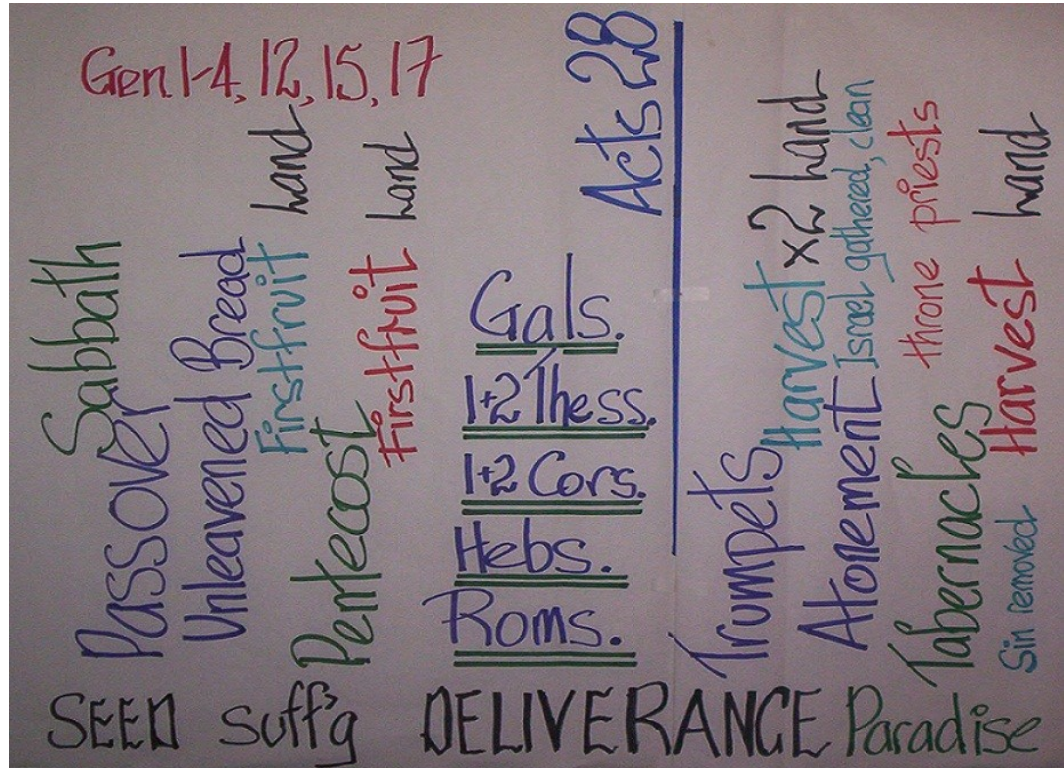 Gen 1-4, 12, 15, 17
Sabbath
Passover
Unleavened Bread
Firstfruit hand
Pentecost
Firstfruit hand
Gals.
1+2 Thess.
1+2 Cors.
Hebs.
Roms.
Acts 28
Trumpets
Harvest x2 hand
Atonement Israel gathered, clean
throne priests
Tabernacles
Sin removed Harvest hand
SEED Suff'g DELIVERANCE Paradise